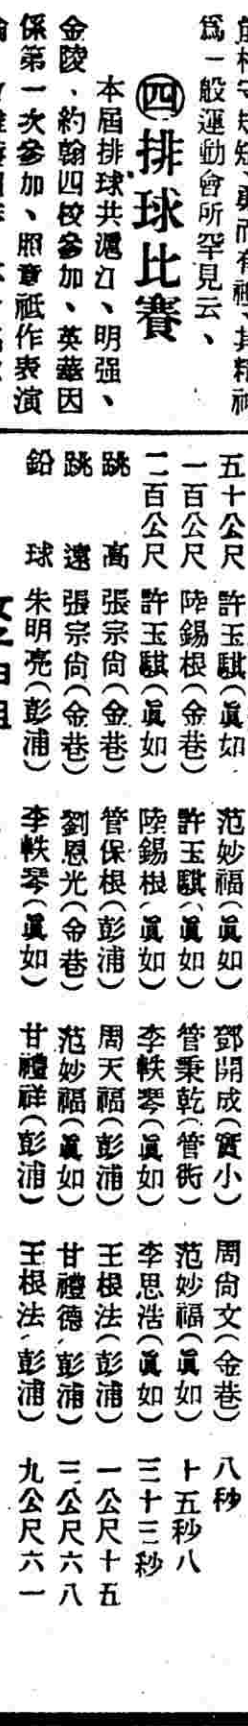 爲一般運動會所罕見云、
㊃排球比賽
本屆排球共滬江、明强、
金陵、約翰四校參加、英華因
係第一次參加、照章祇作表演
五十公尺 許玉騏(眞如) 范妙福(眞如) 鄧開成(寳小) 周尙文(金巷) 八秒
一百公尺 陸錫根(金巷) 許玉騏(眞如) 管秉乾(管衖) 范妙福(眞如) 十五秒八
二百公尺 許玉騏(眞如) 陸錫根(眞如) 李軼琴(眞如) 李思浩(眞如) 三十三秒
跳高 張宗尙(金巷) 管保根(彭浦) 周天福(彭浦) 王根法(彭浦) 一公尺十五
跳遠 張宗尙(金巷) 劉恩光(金巷) 范妙福(眞如) 甘禮德(彭浦) 三公尺六八
鉛球 朱明亮(彭浦) 李軼琴(眞如) 甘禮祥(彭浦) 王根法(彭浦) 九公尺六一